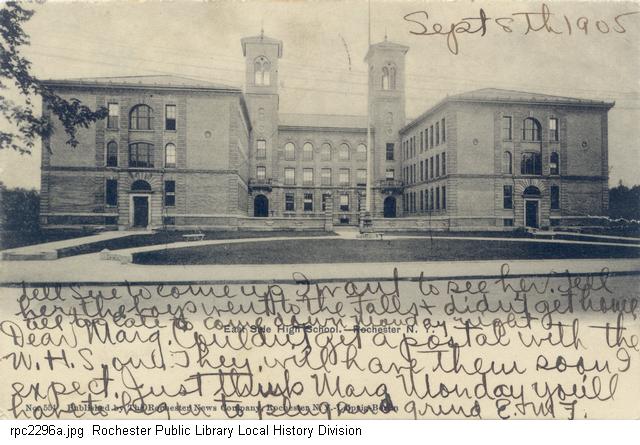 Sept 8th 1905
tell she to come up I want to see her. Tell
her the boys went to the falls & didn't get home
East Side High School.-Rochester N.Y.
Dear Marg Couldn't get a postal with the
W.H.S. on. They will have them soon I
expect. Just think Marg Monday you'll
No. 559 Published by The Rochester News Company, Rochester N.Y.-Leipzig-Berlin
have to start grind E.M.F.
rpc2296a.jpg Rochester Public Library Local History Division